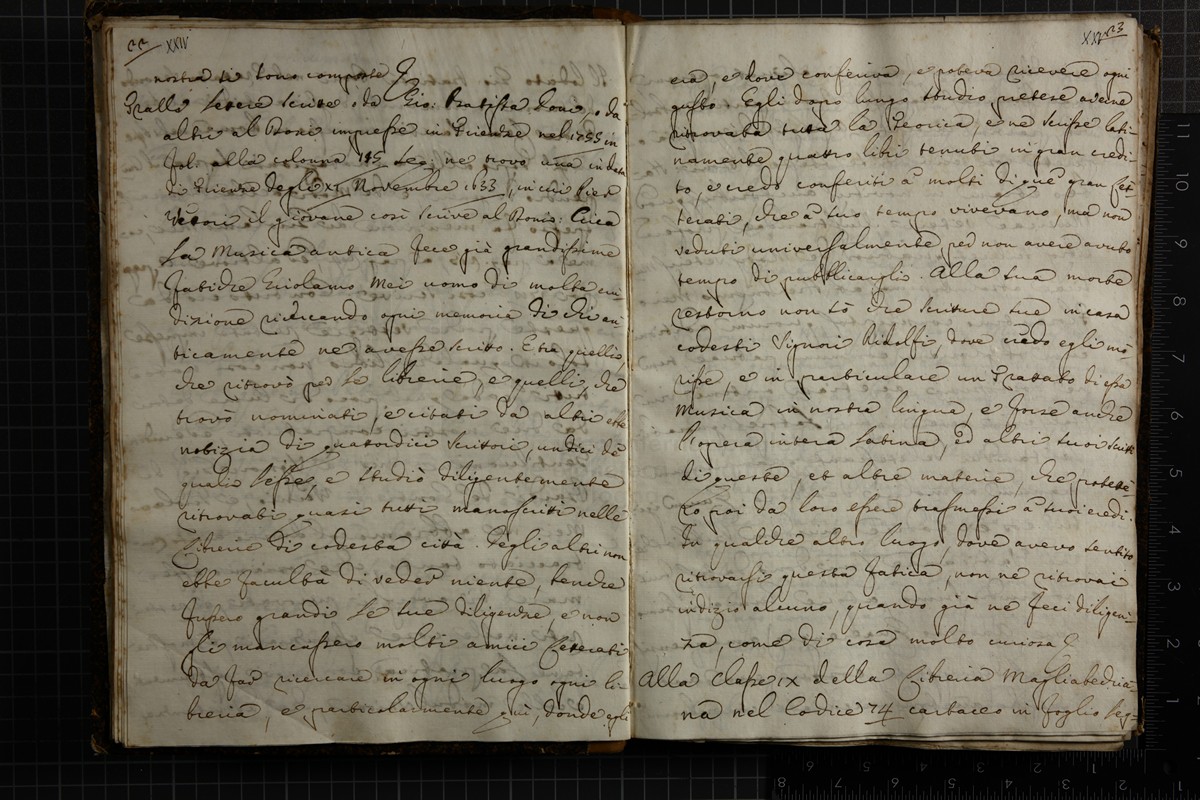 22 XXIV
nostra si sono composte
Tralle Lettere scritte da Gio: Batista Doni, o da
altri al Doni impresse in Firenze nel 1755 in
fol: alla colonna 115 seg. ne trovo una in data
di Firenze degli XI Novembre 1633, in cui Pier
Vettori il giovane così scrive al Doni: Circa
la Musica antica fece già grandissime
fatiche Girolamo Mei uomo di molta eru
dizione ricercando ogni memoria di chi an
ticamente ne avesse scritto. E tra quelli,
che ritrovò per le librerie, e quelli, che
trovò nominati, e citati da altri ebbe
notizia di quatordici scrittori, undici de
quali lesse, e studiò diligentemente
ritrovati quasi tutti manoscritti nelle
Librerie di codesta città. Degli altri non
ebbe facultà di veder niente, benche
fussero grandi le sue diligenze, e non
gli mancassero molti amici Letterati
da far ricercare in ogni luogo ogni li-
breria, e particolarmente qui, donde egli
XXV 23
era, e dove conferiva, e poteva ricevere ogni
gusto. Egli dopo lungo studio pretese averne
ritrovata tutta la Teorica, e ne scrisse lati-
namente quattro libri tenuti in gran credi-
to, e credo conferiti a molti di que' gran Let-
terati, che a suo tempo vivevano, ma non
veduti universalmente, per non avere avuto
tempo di pubblicargli. Alla sua morte
restorno non so che scritture sue in casa
codesti Signori Ridolfi, dove credo egli mo
risse, e in particulare un Trattato di essa
Musica in nostra lingua, e forse anche
l'opera intera latina, ed altri suoi scritti
di queste, et altre materie, che potette
ro poi da loro essere trasmessi a' suoi eredi.
In qualche altro luogo, dove avevo sentito
ritrovarsi questa fatica, non ne ritrovai
indizio alcuno, quando già ne feci diligen-
za, come di cosa molto curiosa
Alla Classe IX della Libreria Magliabechia
na nel Codice 74 cartaceo in foglio seg-